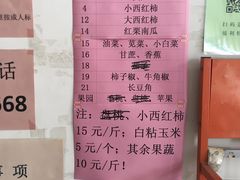 4 小西红柿
12 大西红柿
14 红栗南瓜
15 油菜、苋菜、小白菜
16 甘蔗、香蕉
18
19 柿子椒、牛角椒
21 长豆角
果园 苹果
注: 小西红柿
15元/斤; 白粘玉米
5元/个; 其余果蔬
10元/斤!
按成人标
话
668
事项